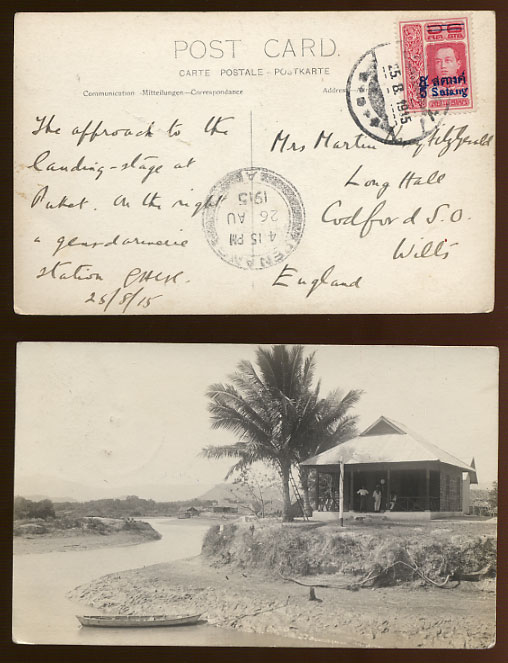 POST CARD.
CARTE POSTALE - POSTKARTE
Communication - Mitteilungen - Correspondance
Address
The approach to the
landing-stage at
Puket. On the right
a gendarmerie
station
25/8/15
Mrs Martin Fitzgerald
Long Hall
Codford S.O.
Wilts
England
25.8.1915
PENANG
4 15 PM
26 AU
1915
๕ สตางค์
5 Satang